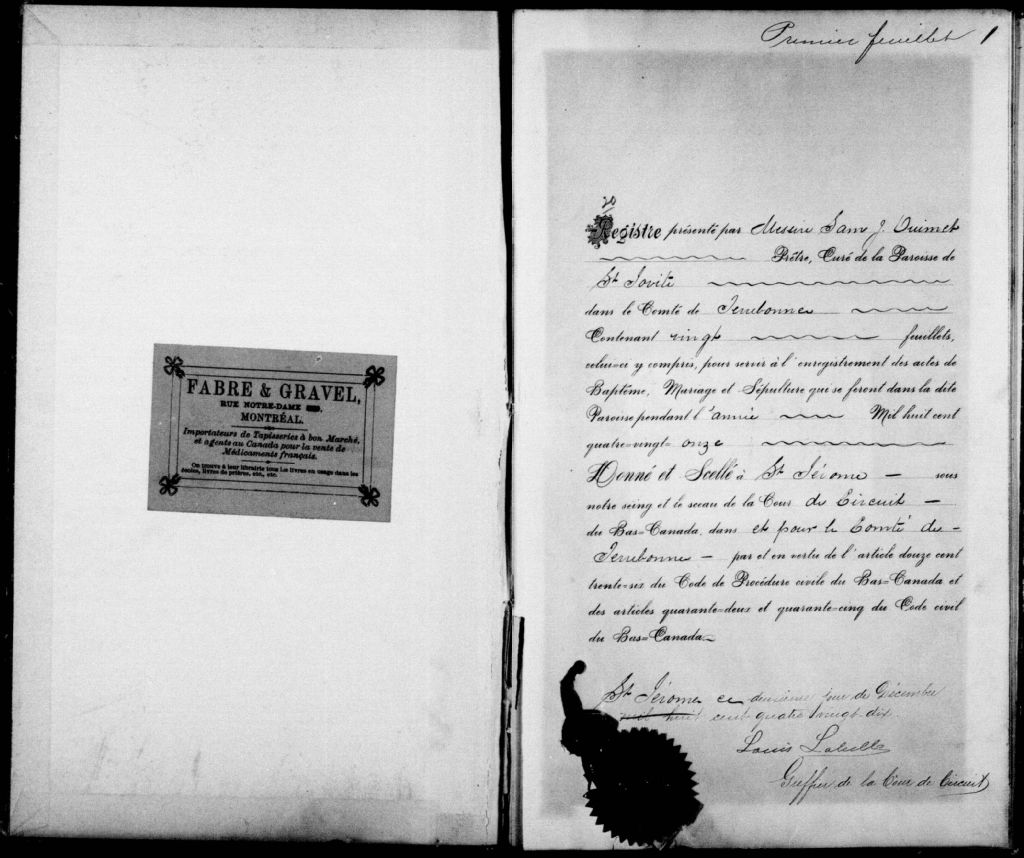 FABRE & GRAVEL,
RUE NOTRE-DAME
MONTRÉAL.
Importateurs de Tapisseries à bon Marché,
et agents au Canada pour la vente de
Médicaments français.
On trouve à leur librairie tous les livres en usage dans les
écoles, livres de prières, etc., etc.
Premier feuillet 1
20
Registre présenté par Messire Sam J. Ouimet
Prêtre, Curé de la Paroisse de
St Jovite
dans le Comté de Terrebonne
Contenant vingt feuillets,
celui-ci y compris, pour servir à l'enregistrement des actes de
Baptême, Mariage et Sépulture qui se feront dans la dite
Paroisse pendant l'année Mil huit cent
quatre-vingt onze
Donné et Scellé à St Jérome — sous
notre seing et le sceau de la Cour de Circuit —
du Bas-Canada, dans et pour le Comté de —
Terrebonne — par et en vertu de l'article douze cent
trente-six du Code de Procédure civile du Bas-Canada et
des articles quarante-deux et quarante-cinq du Code civil
du Bas-Canada.
St Jérome ce jour de Décembre
mil huit cent quatre vingt dix.
Louis Labelle
Greffier de la Cour de Circuit